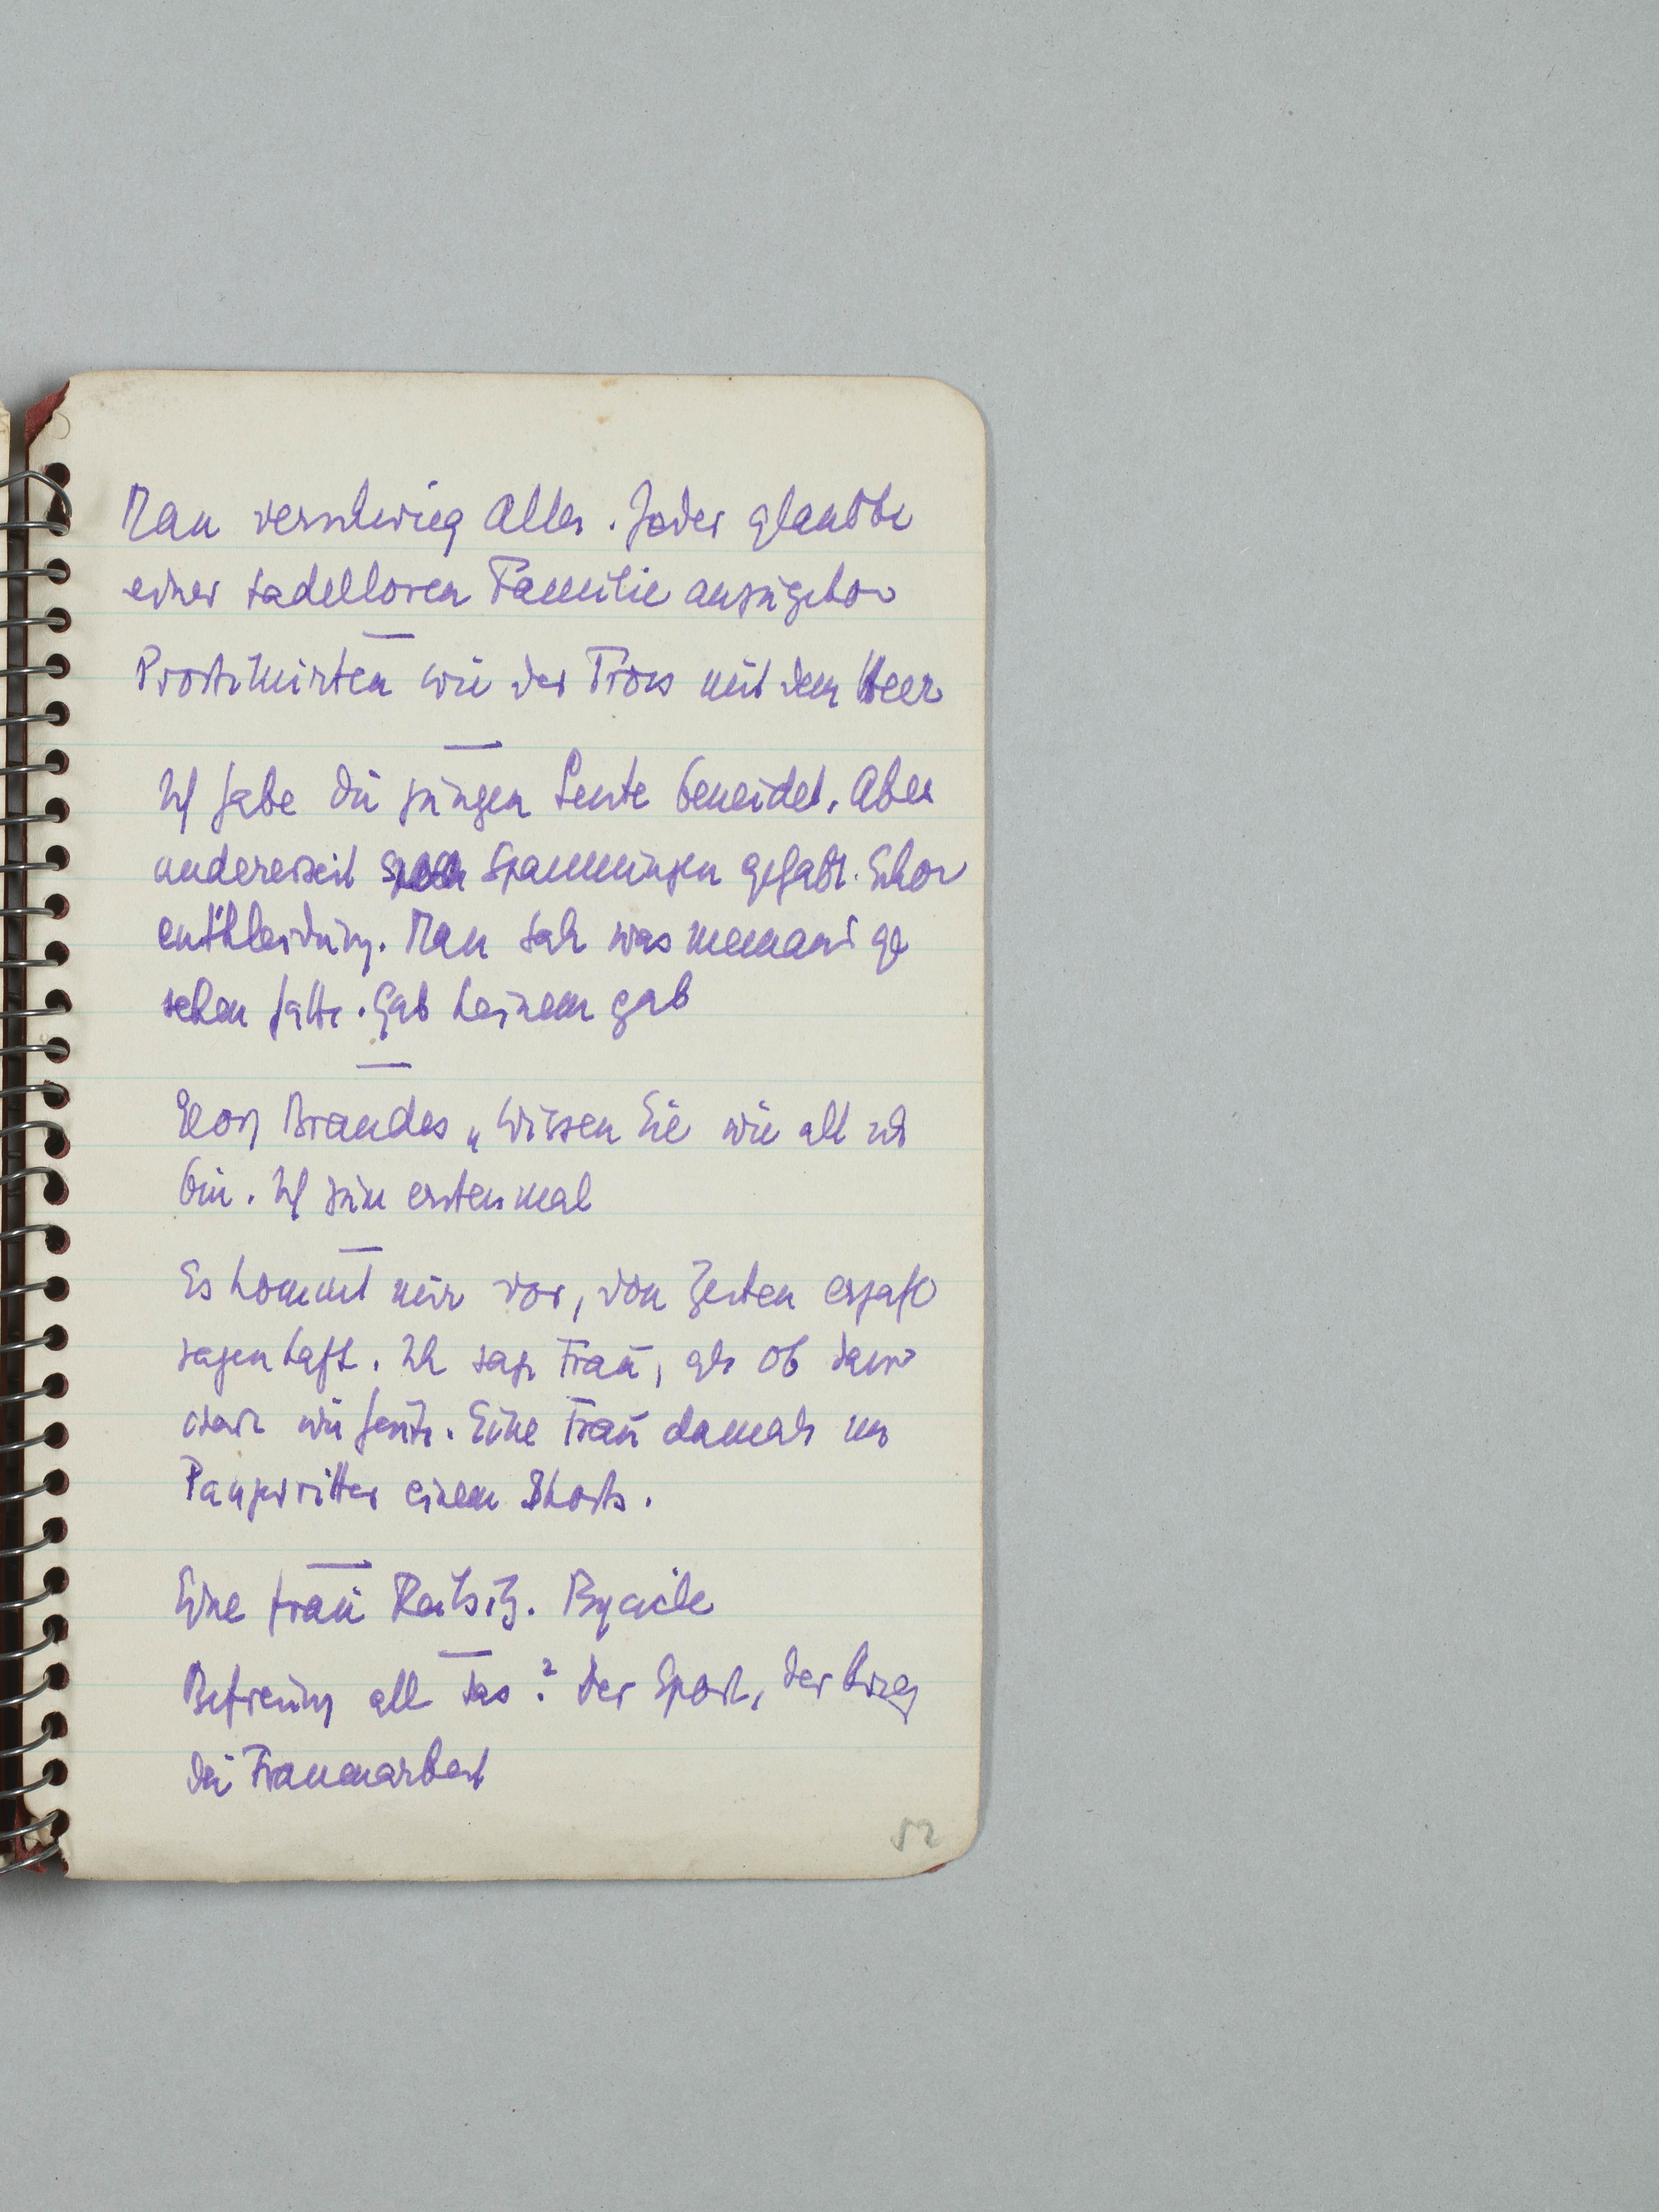 Man verschwieg Alles. Jeder glaubte
einer tadellosen Familie anzugehör
Prostituirten wie der Tross mit dem Heer
Ich habe die jungen Leute beneidet. Aber
andererseit Spannungen gehabt. Schon
entkleidung. Man sah was niemand ge
sehen hatte. Gab keinem gab
Brandes „Wissen Sie wie alt ich
bin. Ich zum erstenmal
Es kommt mir vor, von Zeiten erzähl
sagenhaft. Ich sage Frau, als ob das
wäre wie heute. Eine Frau damals
Panzerritter einem Shorts.
Eine Frau Reitsitz. Bycicle
Befreiung all das? Der Sport, der Krieg
die Frauenarbeit
52